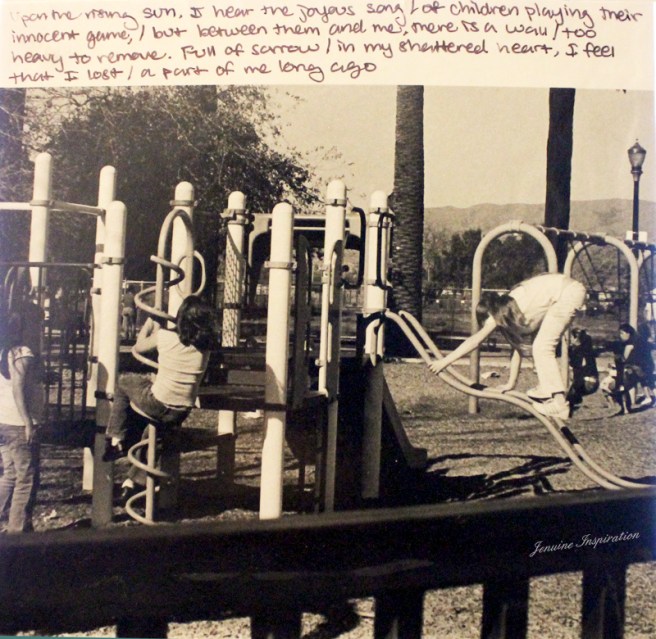 Upon the rising sun, I hear the joyous song / of children playing their
innocent game, / but between them and me, there is a wall / too
heavy to remove. Full of sarrow / in my shattered heart, I feel
that I lost / a part of me long ago
Jenuine Inspiration